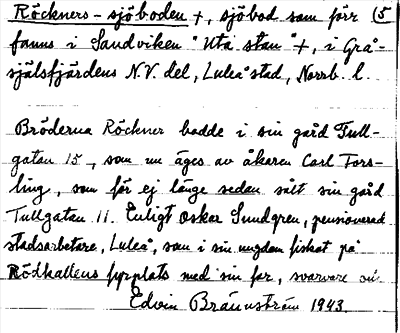 Röckners-sjöboden +, sjöbod som förr (5
fanns i Sandviken "Uta stan" +, i Grå-
själsfjärdens N.V. del, Luleå stad, Norrb. l.
Bröderna Röckner bodde i sin gård Tull-
gatan 15, som nu äges av åkaren Carl Fors-
ling, som för ej länge sedan sålt sin gård
Tullgatan 11. Enligt Oskar Sundgren, pensionerad
stadsarbetare, Luleå, som i sin ungdom fiskat på
Rödkallens fyrplats med sin far, svarvare
Edvin Brännström 1943.